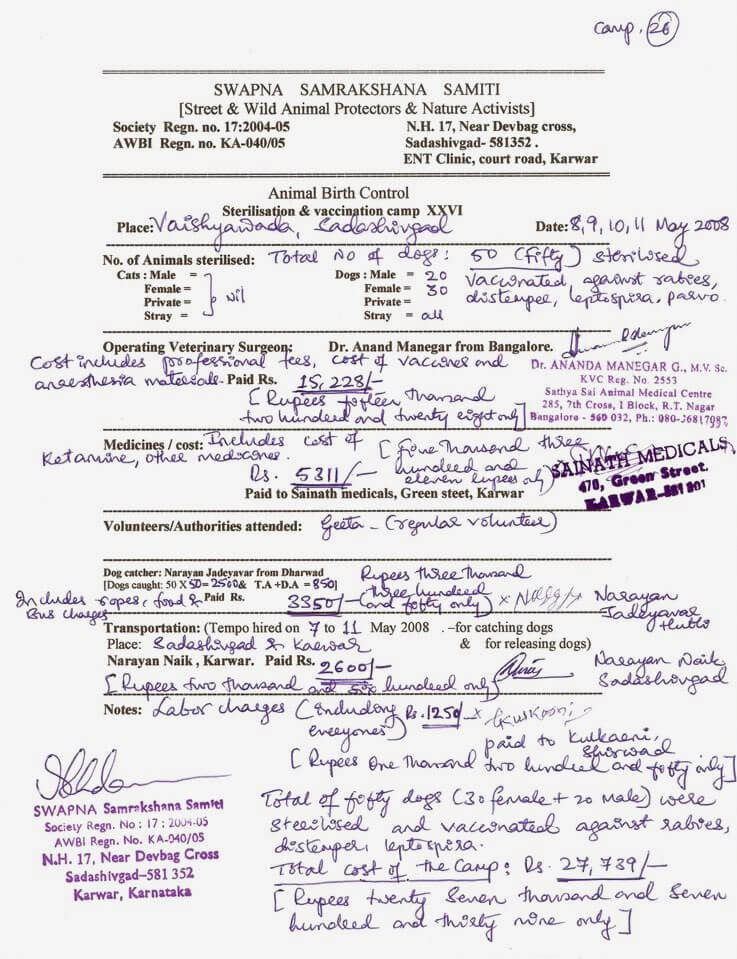 Camp. 26
SWAPNA SAMRAKSHANA SAMITI
[Street & Wild Animal Protectors & Nature Activists]
Society Regn. no. 17:2004-05 N.H. 17, Near Devbag cross,
AWBI Regn. no. KA-040/05 Sadashivgad- 581352 .
ENT Clinic, court road, Karwar
Animal Birth Control
Sterilisation & vaccination camp XXVI
Place: Vaishyawada, Sadashivgad Date: 8,9,10,11 May 2008
No. of Animals sterilised: Total No of dogs: 50 (fifty) sterilised
Cats : Male = Dogs : Male = 20 vaccinated against rabies,
Female = nil Female = 30 distemper, leptospira, parvo.
Private = Private =
Stray = Stray = all
Operating Veterinary Surgeon: Dr. Anand Manegar from Bangalore.
Cost includes professional fees, cost of vaccines and
anaesthesia materials. Paid Rs. 15,228/-
[Rupees fifteen thousand
two hundred and twenty eight only]
Dr. ANANDA MANEGAR G., M.V. Sc.
KVC Reg. No. 2553
Sathya Sai Animal Medical Centre
285, 7th Cross, 1 Block, R.T. Nagar
Bangalore - 560 032, Ph.: 080-
Medicines / cost: Includes cost of [five thousand three
Ketamine, other medicines. hundred and
Rs. 5311/- eleven rupees only]
Paid to Sainath medicals, Green steet, Karwar
SAINATH MEDICALS,
470, Green Street.
KARWAR-581 301
Volunteers/Authorities attended: Geeta - (regular volunteer)
Dog catcher: Narayan Jadeyavar from Dharwad Rupees three thousand
[Dogs caught: 50 X 50= 2500& T.A +D.A = 850] three hundred
Includes ropes, food & Paid Rs. 3350/- and fifty only) x Narayan
Bus charges Jadeyavar
Hubli
Transportation: (Tempo hired on 7 to 11 May 2008 . –for catching dogs
Place: Sadashivgad & Karwar & for releasing dogs)
Narayan Naik , Karwar. Paid Rs. 2600/- Narayan Naik
[Rupees two thousand and six hundred only] Sadashivgad
Notes: Labor charges (including Rs. 1250/- x Kulkarni
everyones) paid to Kulkarni,
Shirwad
[Rupees One thousand two hundred and fifty only]
SWAPNA Samrakshana Samiti
Society Regn. No : 17 : 2004-05
AWBI Regn. No. KA-040/05
N.H. 17, Near Devbag Cross
Sadashivgad–581 352
Karwar, Karnataka
Total of fifty dogs (30 female + 20 Male) were
sterilised and vaccinated against rabies,
distemper, leptospira.
Total cost of the Camp: Rs. 27,739/-
[Rupees twenty Seven thousand and Seven
hundred and thirty nine only]